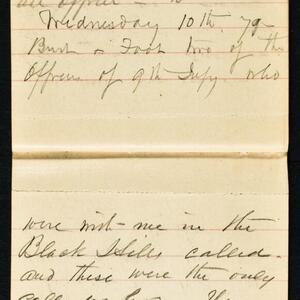 all
Wednesday 10th. 79
Burt & Foot two of the
Officers of 9th Infy. who
were with me in the
Black Hills called.
and these were the only